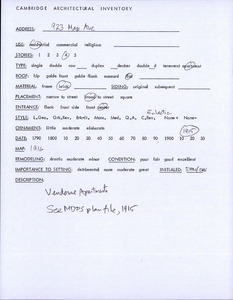 CAMBRIDGE ARCHITECTURAL INVENTORY
ADDRESS: 923 Mass Ave
USE: residential commercial religious
STORIES: 1 2 3 4 5
TYPE: single double row duplex decker double_d tenement apartment
ROOF: hip gable front gable flank mansard flat
MATERIAL: frame brick SIDING: original subsequent
PLACEMENT: narrow to street broad to street square
ENTRANCE: flank front side front
Eclectic
STYLE: L.Geo, Grk.Rev, Ital, Mans, Med, Q.A, C.Rev, None+ None-
ORNAMENT: little moderate elaborate
DATE: 1790 1800 10 20 30 40 50 60 70 80 90 1900 10 20 30
1915
MAP: 1916
REMODELING: drastic moderate minor CONDITION: poor fair good excellent
IMPORTANCE TO SETTING: detrimental none moderate great INITIALED:
DESCRIPTION:
Vendome Apartments
See MDPS plan file, 1915